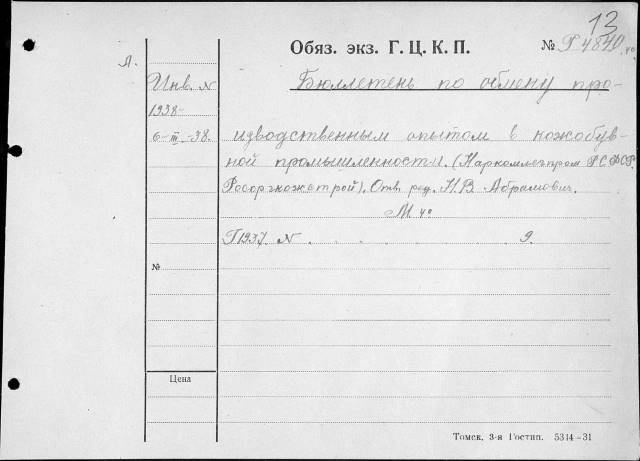 13
Обяз. экз. Г. Ц. К. П. № Г 4840
Л.
Инв. N
Бюллетень по обмену про-
1938-
6-III-38.
изводственным опытом в кожобув-
ной промышленности. (Наркомлегпром РСФСР.
Росоргкожстрой). Отв. ред. Н.В. Абрамович.
М 4°
Г1937. N . . . . . 9.
№
Цена
Томск. 3-я Гостип. 5314-31